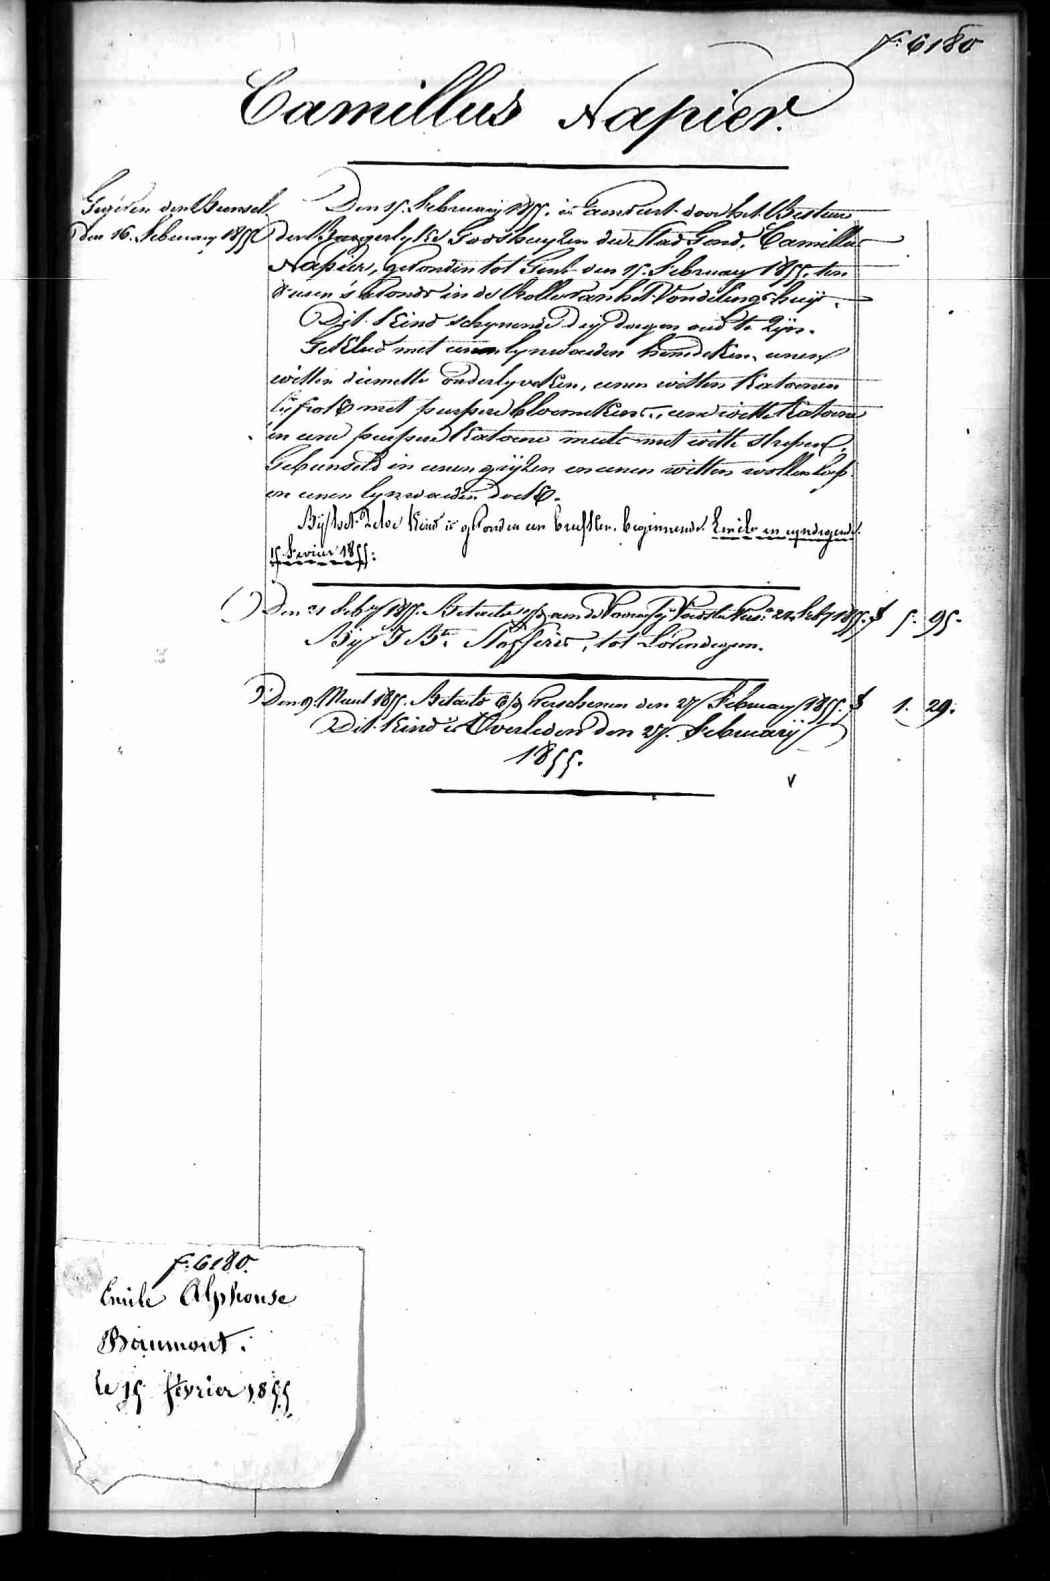 f. 6180
Camillus Napier.
Gegeven den Bunsel
den 16. February 1855
Den 15. February 1855. is aenveert door het Bestuer
der Burgerlyke Godshuyzen der Stad Gend, Camillus
Napier, gevonden tot Gent den 15. February 1855. ten
's avonds in de Rolle van het Vondelings huys.
Dit Kind schynende dry dagen oud te zyn.
Gekleed met eenen lynwaeden hemdeken, eenen
witten diemette onderlyveken, eenen witten Katoenen
lyfrok met purpere bloemekens, eene witte Katoene
en eene purpere Katoene muts met witte strepen.
Gebunseld in eenen gryzen en eenen witten wollen lap
en eenen lynwaeden doek.
By het zelve Kind is gevonden een briefken beginnende Emile en eyndigende
15 Fevrier 1855:
Den 21 Feby 1855. Betaelt aen de Voedster 24 Feby 1855. f 5. 95.
By J. Bte. Stofferis, tot Lovendegem.
Den 9. Maert 1855. Betaelt verschenen den 27 February 1855. f 1. 29.
Dit Kind is Overleden den 27. February
1855.
f. 6180.
Emile Alphonse
Baumont.
le 15 février 1855